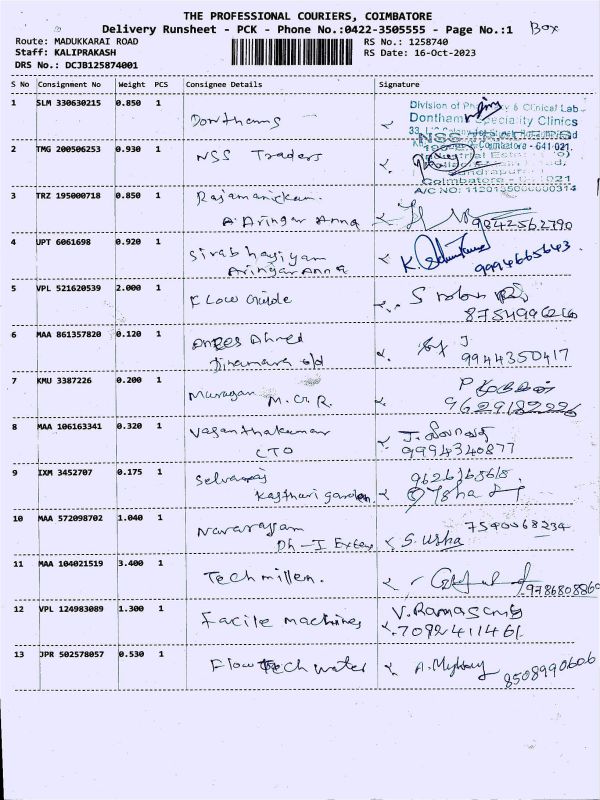 THE PROFESSIONAL COURIERS, COIMBATORE
Delivery Runsheet - PCK - Phone No.:0422-3505555 - Page No.:1 Box
Route: MADUKKARAI ROAD RS No.: 1258740
Staff: KALIPRAKASH RS Date: 16-Oct-2023
DRS No.: DCJB125874001
S No Consignment No Weight PCS Consignee Details Signature
1 SLM 330630215 0.850 1 Donthams
Division of & Clinical Lab
Speciality Clinics
2 TMG 200506253 0.930 1 NSS Traders
NSS
Coimbatore - 641 021.
Coimbatore
3 TRZ 195000718 0.850 1 Rajamanickam
A. Aringar Anna 9842562790
4 UPT 6061698 0.920 1
Aringar Anna 9994665643
5 VPL 521620539 2.000 1 Flow Guide
6 MAA 861357820 0.120 1 Ahmed
9944350417
7 KMU 3387226 0.200 1 Murugan M.G.R.
8 MAA 106163341 0.320 1 Vasanthakumar
CTO 9994340877
9 IXM 3452707 0.175 1 Selvaraj
Kasthuri garden
10 MAA 572098702 1.040 1
Ph-I Exten S. Usha
11 MAA 104021519 3.400 1 Techmillen.
9786808860
12 VPL 124983089 1.300 1 Facile machines V. Ramasamy
7092411461
13 JPR 502578057 0.530 1 Flow tech water
8508990606